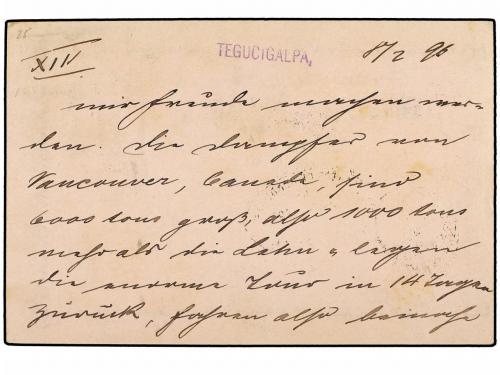 25
XIV
TEGUCIGALPA,
8/2 96
mir Freude machen wer-
den. Die Dampfer von
Vancouver, Canada, sind
6000 tons groß, also 1000 tons
mehr als die Lahn u legen
die enorme Tour in 14 Tagen
zurück, fahren also beinahe